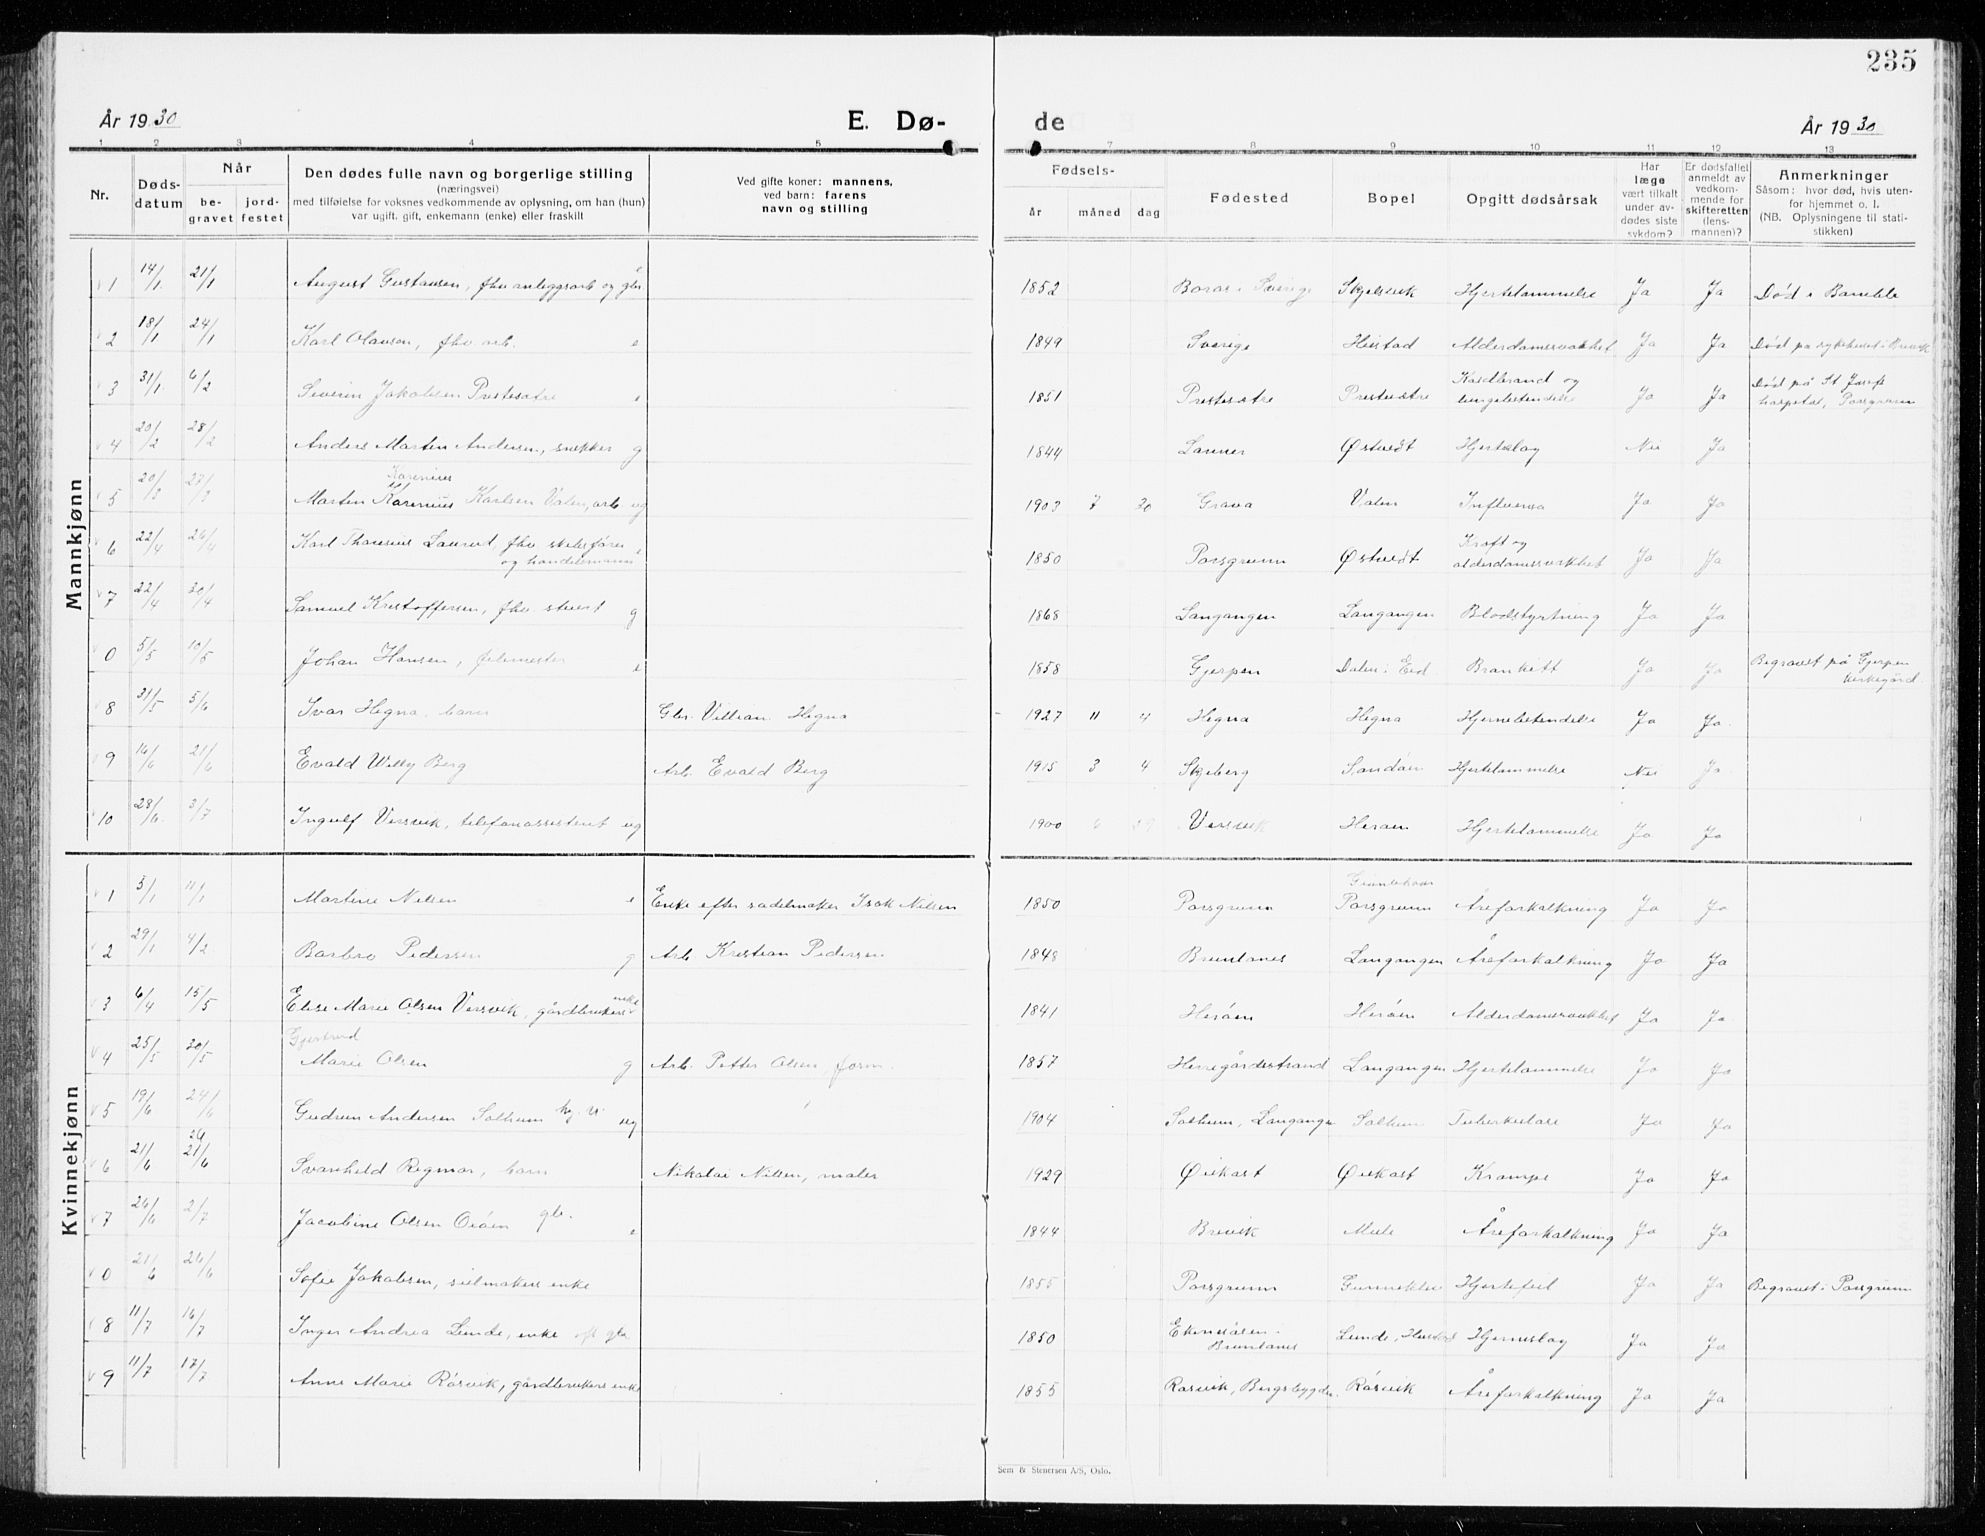 235
År 1930
E. Dø-
de
År 1930
1 2 3 4 5
7 8 9 10 11 12 13
Nr.
Døds-
datum
Når
be-
gravet
jord-
festet
Den dødes fulle navn og borgerlige stilling
(næringsvei)
med tilføielse for voksnes vedkommende av oplysning, om han (hun)
var ugift. gift, enkemann (enke) eller fraskilt
Ved gifte koner: mannens,
ved barn: farens
navn og stilling
Fødsels-
år måned dag
Fødested
Bopel
Opgitt dødsårsak
Har
læge
vært tilkalt
under av-
dødes siste
sykdom?
Er dødsfallet
anmeldt av
vedkom-
mende for
skifteretten
(lens-
mannen)?
Anmerkninger
Såsom: hvor død, hvis uten-
for hjemmet o. l.
(NB. Oplysningene til stati-
stikken)
Mannkjønn
1 14/1 21/1 August Gustavsen, fhv anleggsarb og gbr e 1852 Boras i Sverige Skjelsvik Hjertelammelse Ja Ja Død i Bamble
2 18/1 24/1 Karl Olausen, fhv arb. e 1849 Sverige Heistad Alderdomssvakhet Ja Ja Død på sykehuset i Brevik
3 31/1 6/2 Severin Jakobsen Prestesætre e 1851 Prestesætre Ja Ja
Koldbrand og
lungebetendelse
Død på St Josefs
hospital, Porsgrunn
4 20/2 28/2 Anders Martin Andersen, snekker g 1844 Lanner Østvedt Hjerteslag Nei Ja
Karenius
5 20/3 27/3 Marten Karenius Karlsen Valen, arb. ug 1903 7 20 Grava Valen Influensa Ja Ja
6 22/4 26/4 Karl Laurits, fhv. skibsfører e
og handelsmann
1850 Porsgrunn Østvedt Ja Ja
Kreft og
alderdomssvakhet
7 22/4 30/4 Samuel Kristoffersen, fhv. stuert g 1868 Langangen Langangen Blodstyrtning Ja Ja
0 5/5 10/5 Johan Hansen, e 1858 Gjerpen Dalen i Eid Bronkitt Ja Ja
Begravet på Gjerpen
kirkegård.
8 31/5 5/6 Ivar Hegna, barn Gbr. Hegna 1927 11 4 Hegna Hegna Hjernebetendelse Ja Ja
9 16/6 21/6 Evald Willy Berg Arb. Evald Berg 1915 3 4 Skjeberg Sandøen Hjertelammelse Nei Ja
10 28/6 3/7 Ingulf Versvik, telefonassistent ug 1900 6 29 Versvik Herøen Hjertelammelse Ja Ja
Kvinnekjønn
1 5/1 11/1 Martine Nilsen e Enke efter sadelmaker Isak Nilsen 1850 Porsgrunn Porsgrunn Åreforkalkning Ja Ja
2 29/1 4/2 Barbro Pedersen g Arb Kristian Pedersen 1848 Brunlanes Langangen Åreforkalkning Ja Ja
3 6/4 15/5 Elise Marie Olsen Versvik, gårdbrukers enke 1841 Herøen Herøen Alderdomssvakhet Ja Ja
Gjertrud
4 25/5 30/5 Marie Olsen g Arb. Petter Olsen, form. 1857 Herregårdsstrand Langangen Hjertelammelse Ja Ja
5 19/6 24/6 Gudrun Andersen Solheim ug 1904 Solheim, Langangen Solheim Tuberkulose Ja Ja
24
6 21/6 21/6 Svanhild Ragmar, barn Nikolai Nilsen, maler 1929 Øikast Øikast Krampe Ja Ja
7 26/6 2/7 Jacobine Olsen gbr. e 1844 Brevik Mule Åreforkalkning Ja Ja
0 21/6 26/6 Sofie Jakobsen, seilmakers enke 1855 Porsgrunn Gunneklev Hjertefeil Ja Ja Begravet i Porsgrunn
8 11/7 16/7 Inger Andrea Lunde, enke eft gbr 1850 Lunde, Heistad Hjerneslag Ja Ja
Brunlanes
9 11/7 17/7 Anne Marie Rørvik, gårdbrukers enke 1855 Rørvik, Bergsbygden. Rørvik Åreforkalkning Ja Ja
Sem & Stenersen A/S, Oslo.